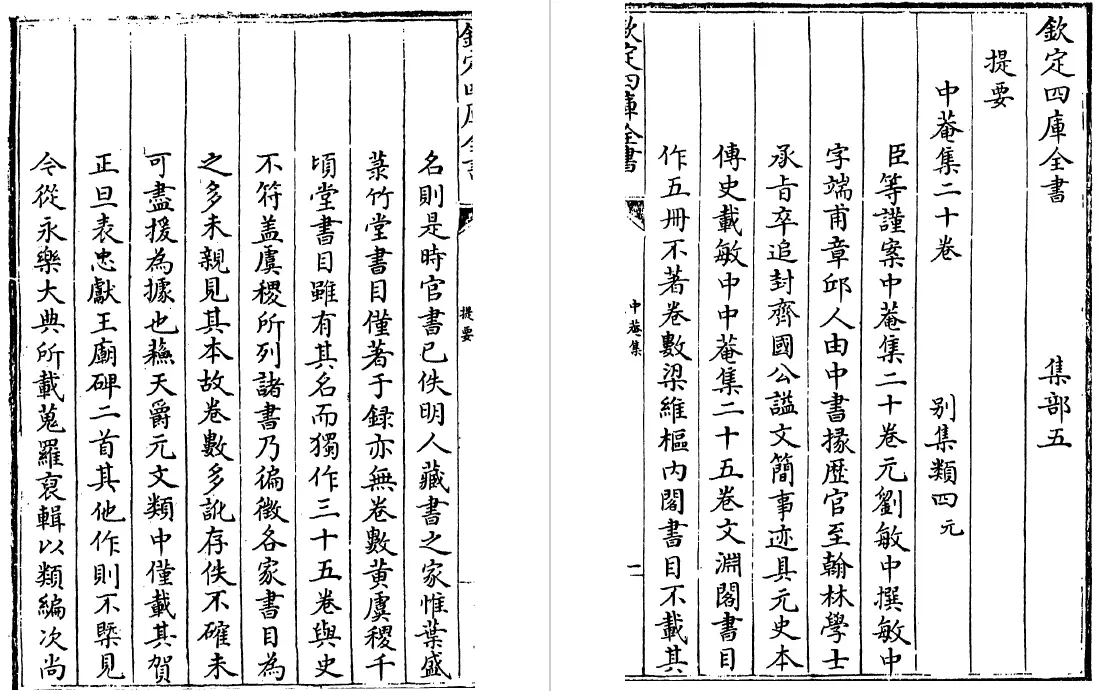 欽定四庫全書 集部五
提要
中菴集二十卷 别集類四元
臣等謹案中菴集二十卷元劉敏中撰敏中
字端甫章邱人由中書掾歴官至翰林學士
承旨卒追封齊國公諡文簡事迹具元史本
傳史載敏中中菴集二十五卷文淵閣書目
作五冊不著卷數梁維樞内閣書目不載其
欽定四庫全書 中菴集 二
欽定四庫全書 提要
名則是時官書已佚明人藏書之家惟葉盛
菉竹堂書目僅著于録亦無卷數黄虞稷千
頃堂書目雖有其名而獨作三十五卷與史
不符盖虞稷所列諸書乃徧徵各家書目為
之多未親見其本故卷數多訛存佚不確未
可盡援為據也蘓天爵元文類中僅載其賀
正旦表忠獻王廟碑二首其他作則不槩見
今從永樂大典所載蒐羅裒輯以類編次尚